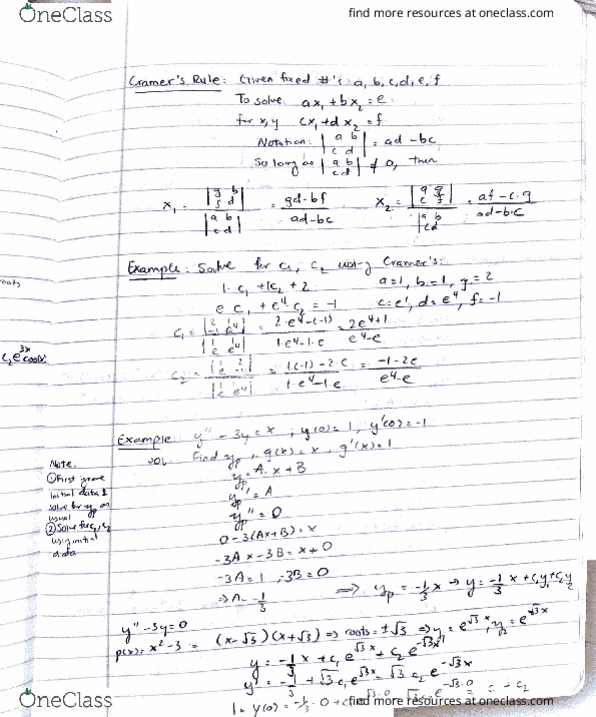 OneClass
find more resources at oneclass.com
Cramer's Rule: Given fixed #'s a, b, c, d, e, f
To solve ax₁ + bx₂ = e
for x, y cx₁ + dx₂ = f
Notation: | a b / c d | = ad - bc
So long as | a b / c d | ≠ 0, then
x₁ = | g b / f d | / | a b / c d | = gd - bf / ad - bc
x₂ = | a g / c f | / | a b / c d | = af - c·g / ad - b·c
Example: Solve for c₁, c₂ using Cramer's:
1·c₁ + 1c₂ + 2 a=1, b=1, g=2
e c₁ + e⁴ c₂ = -1 c=e¹, d=e⁴, f=-1
c₁ = | 2 1 / -1 e⁴ | / | 1 1 / e e⁴ | = 2·e⁴-(-1) / 1·e⁴-1·e = 2e⁴+1 / e⁴-e
c₂ = | 1 2 / e -1 | / | 1 1 / e e⁴ | = 1(-1)-2e / 1·e⁴-1·e = -1-2e / e⁴-e
c₂e³ˣcos
Example: y'' - 3y = x ; y(0) = 1, y'(0) = -1
sol. Find yp, g(x) = x, g'(x) = 1
yp = A·x + B
yp' = A
yp'' = 0
0 - 3(Ax+B) = x
-3Ax - 3B = x + 0
-3A = 1, -3B = 0
⇒ A = -1/3 ⇒ yp = -1/3 x → y = -1/3 x + c₁y₁ + c₂y₂
Note:
① First ignore
initial data &
solve for yp as
usual
② Solve for c₁, c₂
using initial
data
y'' - 3y = 0
p(x) = x² - 3 = (x-√3)(x+√3) ⇒ roots = ±√3 ⇒ y₁ = e^√3x, y₂ = e^-√3x
y = -1/3 x + c₁ e^√3x + c₂ e^-√3x
y' = -1/3 + √3 c₁ e^√3x - √3 c₂ e^-√3x
1 = y(0) = -1/3 · 0 + c₁ e^√3·0 e^-√3·0 = c₁ + c₂
OneClass
find more resources at oneclass.com